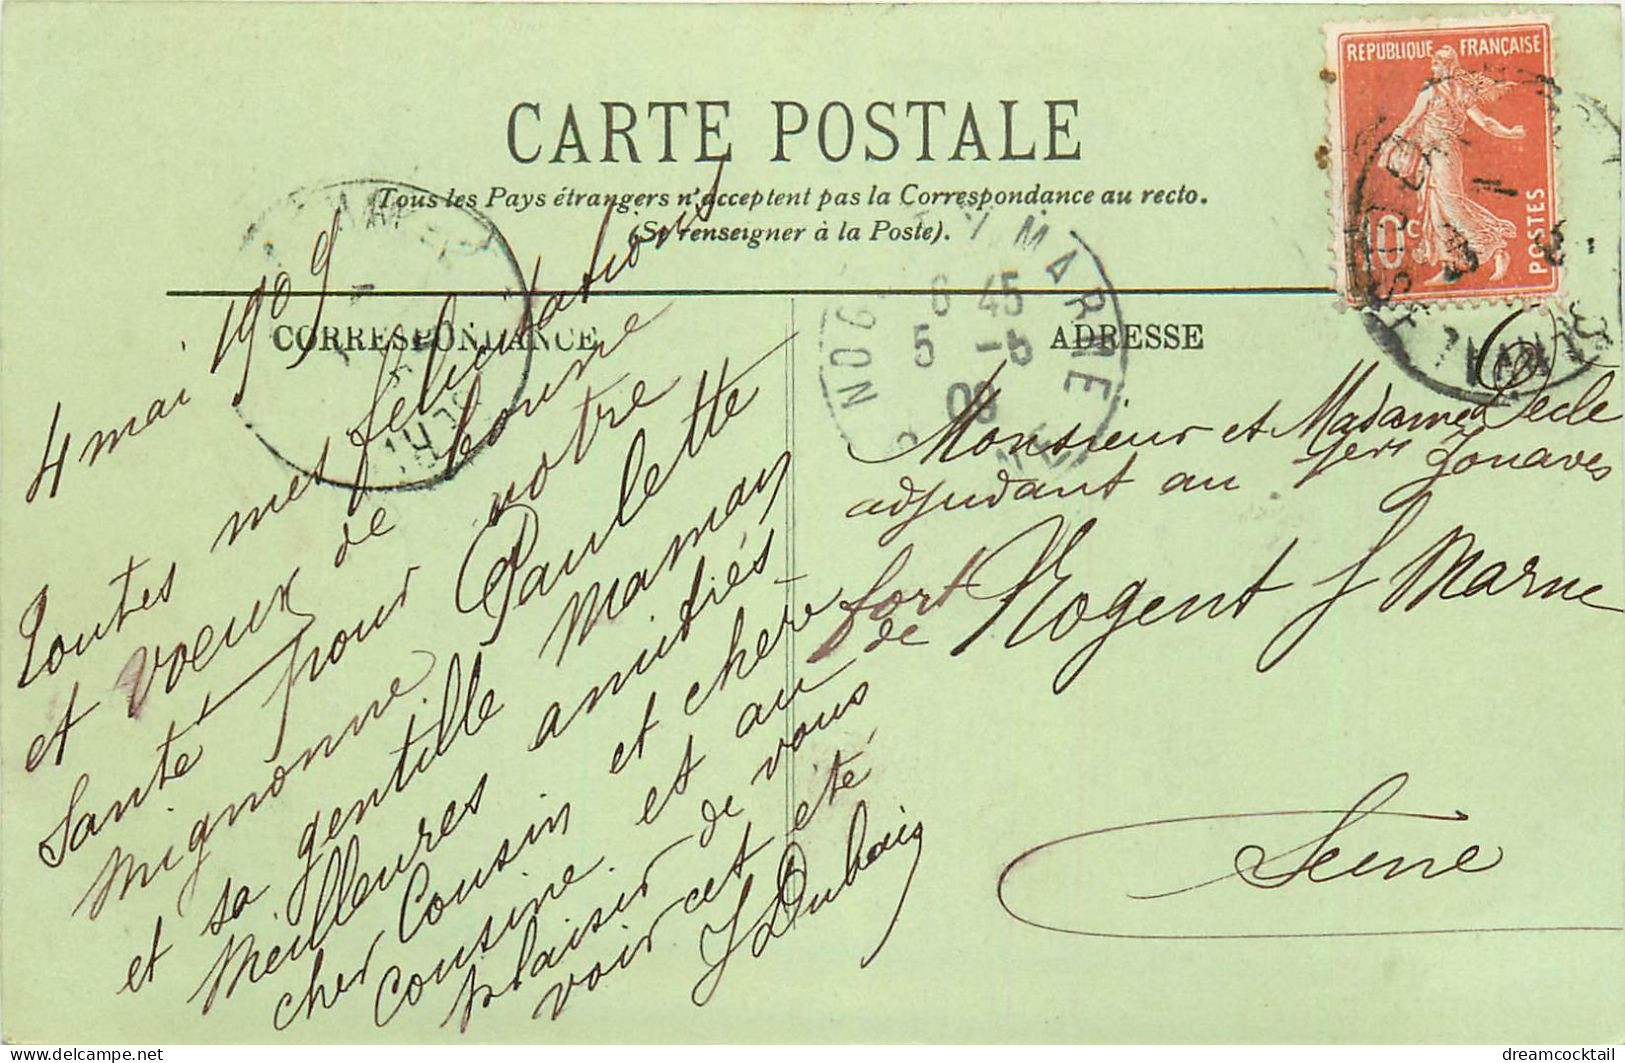 CARTE POSTALE
Tous les Pays étrangers n'acceptent pas la Correspondance au recto.
(Se renseigner à la Poste).
REPUBLIQUE FRANÇAISE
10c
POSTES
CORRESPONDANCE
ADRESSE
MARNE
6 45
5 -5
09
4 mai 1909
Toutes mes félicitations
et voeux de bonne
Santé pour votre
mignonne Paulette
et sa gentille Maman
Meilleures amitiés
cher Cousin et chère
Cousine et au
plaisir de vous
voir cet été
Monsieur et Madame
adjudant au 1er Zouaves
fort
de Nogent s/ Marne
Seine
dreamcocktail
delcampe.net